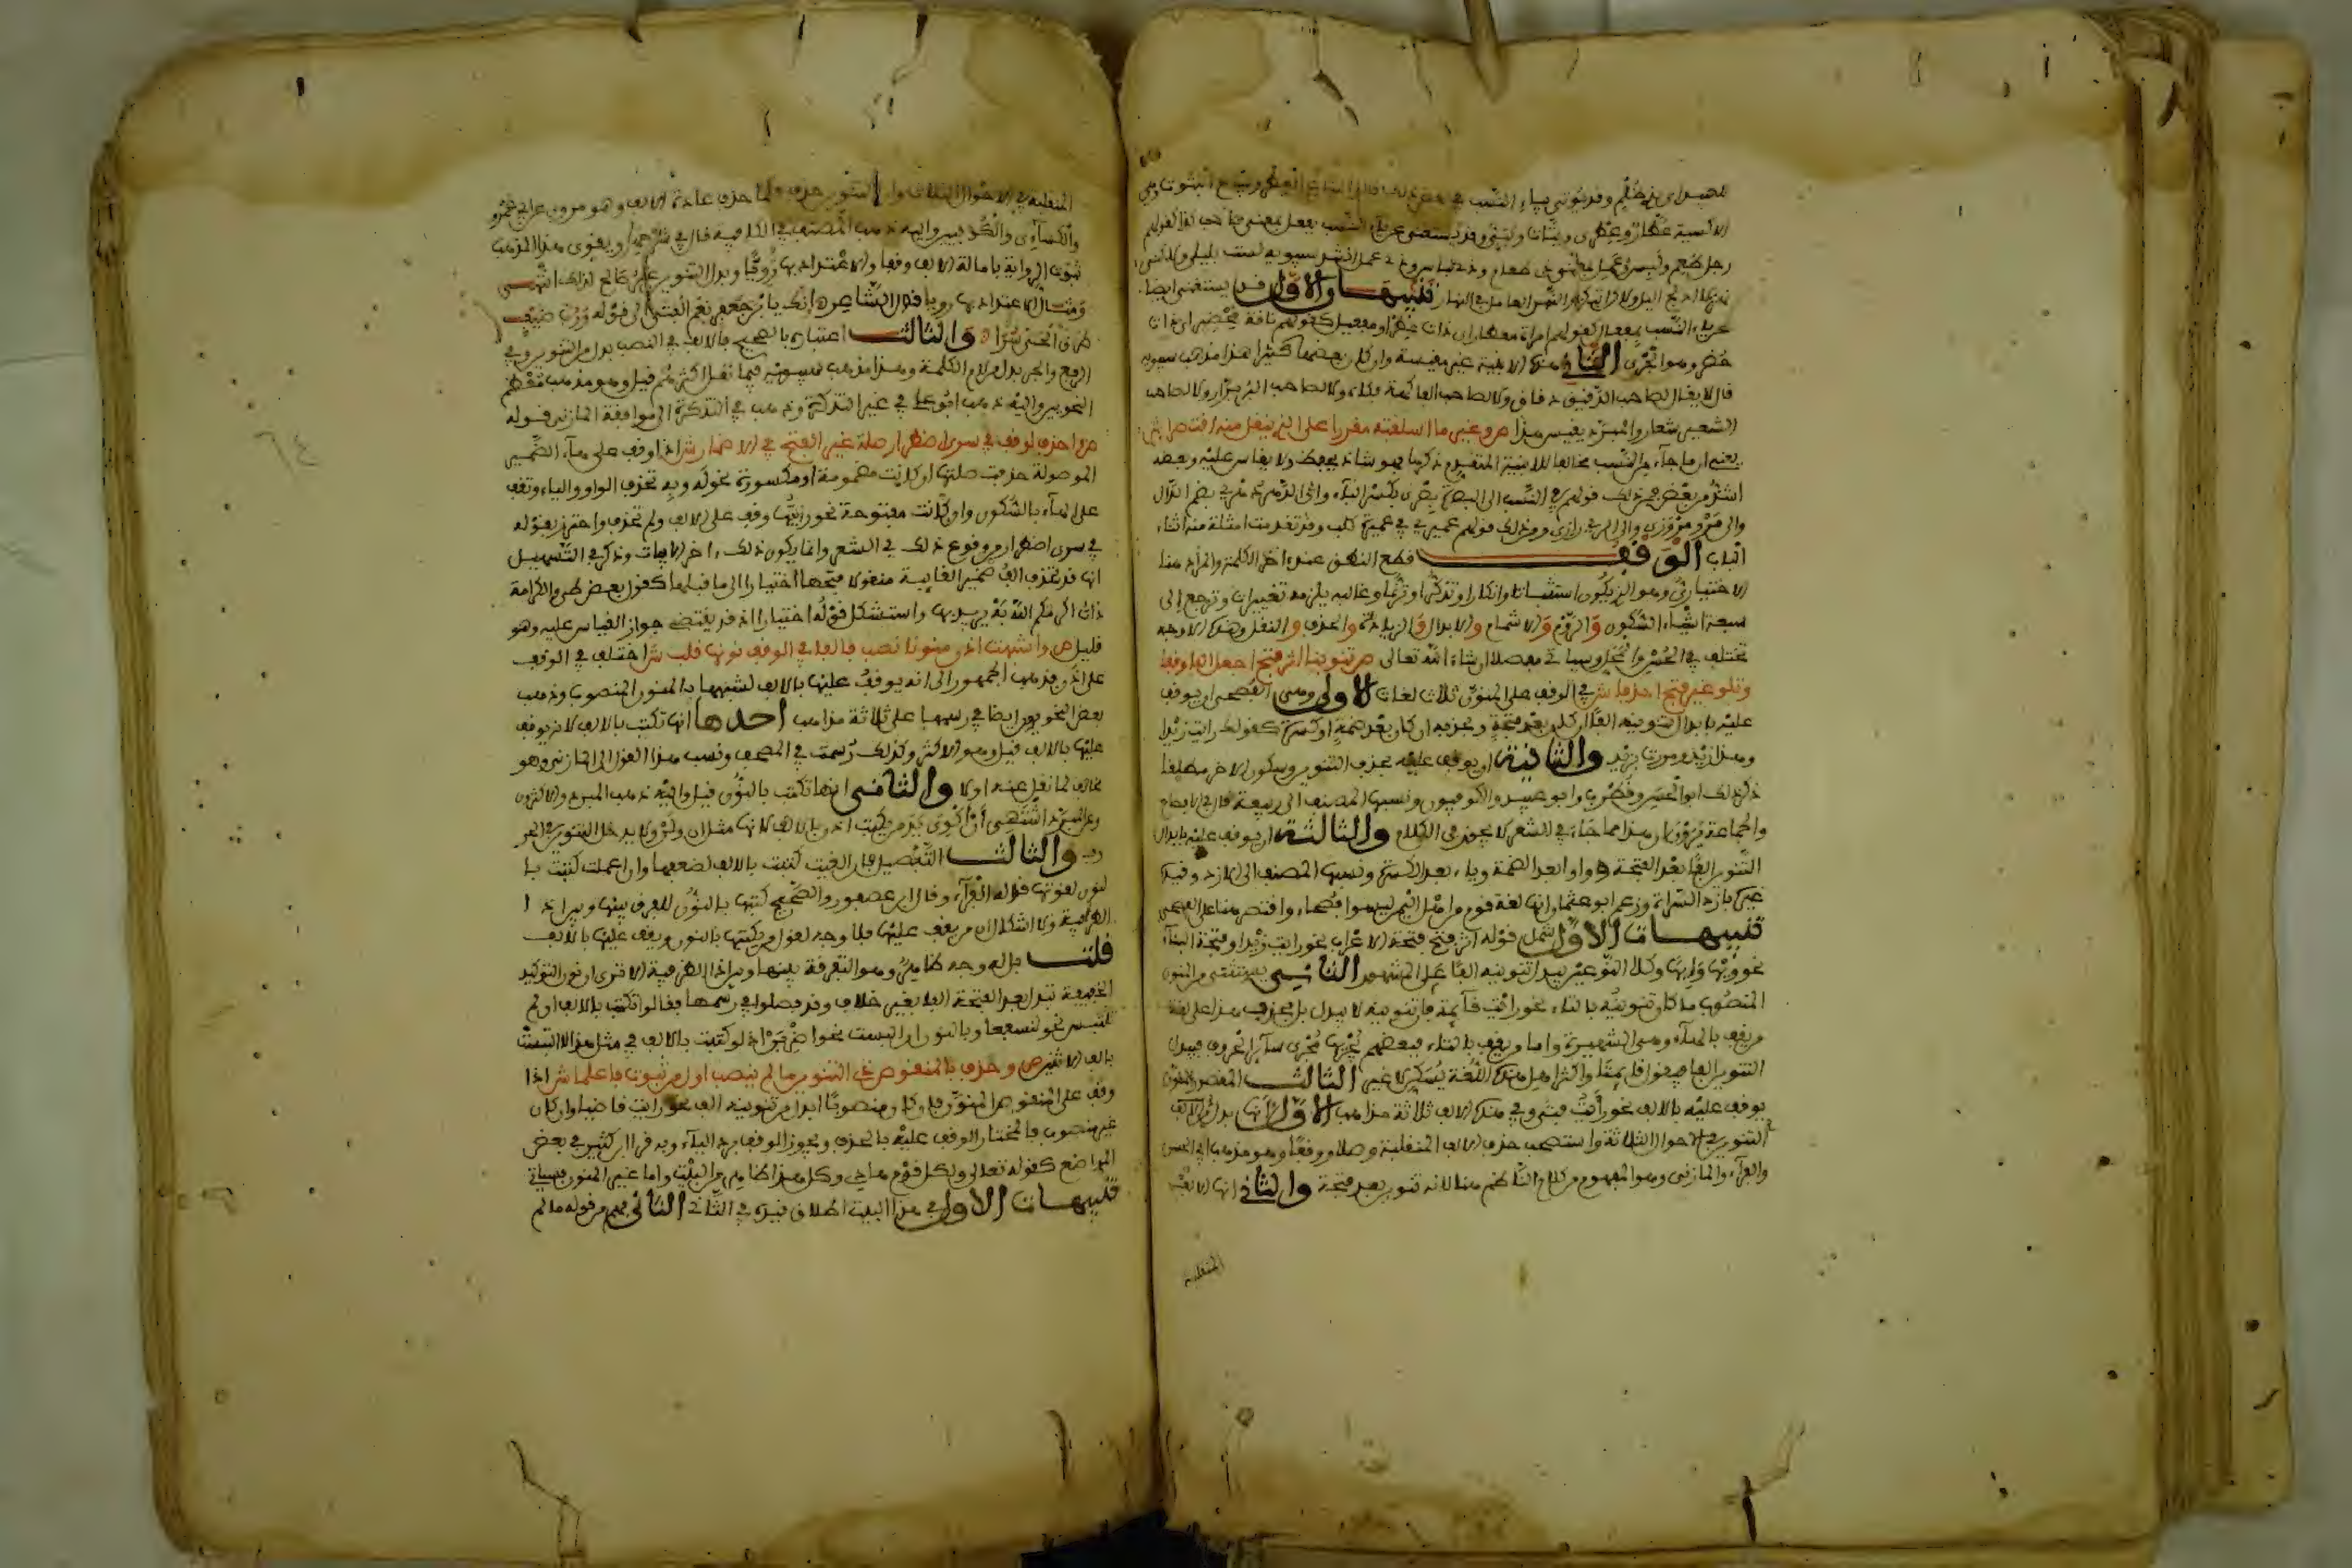 الاكسية عطار وعطرى وبتات وبتى وقد يستغنى عن ياء النسب بفعل بمعنى صاحب كذا كقولهم
رجل طعم ولبس وعمل بمعنى ذى طعام وذى لباس وذى عمل انشد سيبويه لست بليلى ولكنى
نهر لا ادلج اليل ولاكن ابتكر اى ولكنى نهارى اى عامل فى النهار تنبيهان الاول قد يستغنى ايضا
عن ياء النسب بمفعال كقولهم امراة معطار اى ذات عطر او مفعيل كقولهم ناقة محضير اى ذات
حضر وهو الجرى الثانى هذه الابنية غير مقيسة وان كان بعضها كثيرا هذا مذهب سيبويه
قال لا يقال لصاحب الدقيق دقاق ولا لصاحب الفاكهة فكاه ولا لصاحب البر برار ولا لصاحب
الشعير شعار والمبرد يقيس هذا ص وغير ما اسلفته مقررا على الذى ينقل منه اقتصرا ش
يعنى ان ما جاء من النسب مخالفا للابنية المتقدم ذكرها فهو شاذ يحفظ ولا يقاس عليه وبعضه
اشذ من بعض فمن ذلك قولهم فى النسب الى البصرة بصرى بكسر الباء والى الدهر دهرى بضم الدال
والى مرو مروزى والى الرى رازى ومن ذلك قولهم عميرى فى عميرة كلب وقد تقدمت امثلة من اثناء
الباب الوقف قطع النطق عند اخر الكلمة والمراد هنا
الاختيارى وهو الذى يكون استثباتا وانكارا وتذكرا وترنما وغالبه يلزمه تغييرات وترجع الى
سبعة اشياء السكون والروم والاشمام والابدال والزيادة والحذف والنقل وهذه الاوجه
تختلف فى الحسن والمحل وسياتى مفصلا ان شاء الله تعالى ص تنوينا اثر فتح اجعل الفا وقفا
وتلو غير فتح احذفا ش فى الوقف على المنون ثلاث لغات الاولى وهى الفصحى ان يوقف
عليه بابدال تنوينه الفا ان كان بعد فتحة وبحذفه ان كان بعد ضمة او كسرة كقولك رايت زيدا
وهذا زيد ومررت بزيد والثانية ان يوقف عليه بحذف التنوين وسكون الاخر مطلقا
ذكر ذلك ابو الحسن وقطرب وابو عبيد والكوفيون ونسبها المصنف الى ربيعة
والثالثة ان يوقف عليه بابدال
التنوين الفا بعد الفتحة وواوا بعد الضمة وياء بعد الكسرة ونسبها المصنف الى الازد وقيد
غيره بازد السراة وزعم ابو عثمان انها لغة قوم من اهل اليمن ليسوا فصحاء واقتصر هنا على الفصحى
تنبيهات الاول شمل قوله اثر فتح فتحة الاعراب نحو رايت زيدا وفتحة البناء
نحو ويها وايها وكلا النوعين يبدل تنوينه الفا على المشهور الثانى يستثنى من المنون
المنصوب ما كان تنوينه بالتاء نحو رايت قائمة فان تنوينه لا يبدل بل يحذف هذا على لغة
من يقف بالهاء وهى الشهيرة واما من يقف بالتاء فبعضهم يجريها مجرى سائر الحروف فيبدل
التنوين الفا فيقول قائمتا واكثر اهل هذه اللغة يسكنها لا غير الثالث المقصور المنون
يوقف عليه بالالف نحو رايت فتى وفى هذه الالف ثلاثة مذاهب الاول انها بدل من
التنوين فى الاحوال الثلاثة واستصحب حذف الالف المنقلبة وصلا ووقفا وهو مذهب ابى الحسن
والفراء والمازنى وهو المفهوم من كلام الناظم هنا لانه تنوين بعد فتحة والثانى انها الالف
المنقلبة
المنقلبة فى الاحوال الثلاثة وان التنوين حذف فلما حذف عادت الالف وهو مروى عن ابى عمرو
والكسائى والكوفيين واليه ذهب المصنف فى الكافية قال فى شرحها ويقوى هذا المذهب
ثبوت الرواية بامالة الالف وقفا والاعتداد بها رويا وبدل التنوين غير صالح لذلك انتهى
ومثال الاعتداد بها رويا قول الشاعر انك يا بن جعفر نعم الفتى الى قوله ورب ضيف
طرق الحى سرى والثالث اعتباره بالصحيح فالالف فى النصب بدل من التنوين وفى
الرفع والجر بدل من لام الكلمة وهذا مذهب سيبويه فيما نقل اكثرهم قيل وهو مذهب معظم
النحويين واليه ذهب ابو على فى غير التذكرة وذهب فى التذكرة الى موافقة المازنى قوله
ص واحذف لوقف فى سوى اضطرار صلة غير الفتح فى الاضمار ش اذا وقف على هاء الضمير
الموصولة حذفت صلتها ان كانت مضمومة او مكسورة نحو له وبه تحذف الواو والياء وتقف
على الهاء بالسكون وان كانت مفتوحة نحو رايتها وقف على الالف ولم تحذف واحترز بقوله
فى سوى اضطرار من وقوع ذلك فى الشعر وانما يكون ذلك اخر الابيات وذكر فى التسهيل
انه قد تحذف الف ضمير الغايبة منقولا فتحها اختيارا الى ما قبلها كقول بعض طى والكرامة
ذات اكرمكم الله به يريد بها واستشكل قوله اختيارا اذ قد يقتضى جواز القياس عليه وهو
قليل ص واشبهت اذن منونا نصب فالفا فى الوقف نونها قلب ش اختلف فى الوقف
على اذن فذهب الجمهور الى انه يوقف عليها بالالف لشبهها بالمنون المنصوب وذهب
بعض النحويين ايضا فى رسمها على ثلاثة مذاهب احدها انها تكتب بالالف لانه يوقف
عليها بالالف قيل وهو الاكثر وكذلك رسمت فى المصحف ونسب هذا القول الى المازنى وهو
مخالف لما نقل عنه اولا والثانى انها تكتب بالنون قيل واليه ذهب المبرد والاكثرون
وعن المبرد اشتهى ان اكوى يد من يكتب اذن بالالف لانها مثل ان ولن ولا يدخل التنوين فى الحروف
والثالث التفصيل فان الغيت كتبت بالالف لضعفها وان اعملت كتبت با
لنون لقوتها قاله الفراء وقال ابن عصفور والصحيح كتبها بالنون للفرق بينها وبين اذا
الظرفية ولا اشكال ان من يقف عليها فلا وجه لقول من يكتبها بالنون ويقف عليها بالالف
قلت بل له وجه ظاهر وهو التفرقة بينها وبين اذا الظرفية الا ترى ان نون التوكيد
الخفيفة تبدل بعد الفتحة الفا بغير خلاف وقد فصلوا فى رسمها فقالوا تكتب بالالف ان لم
تلتبس نحو لنسفعا وبالنون ان التبست نحو اضربن اذ لو كتبت بالالف فى مثل هذا لالتبست
بالف الاثنين ص وحذف يا المنقوص ذى التنوين ما لم ينصب اولى من ثبوت فاعلما ش اذا
وقف على المنقوص المنون فان كان منصوبا ابدل من تنوينه الف نحو رايت قاضيا وان كان
غير منصوب فالمختار الوقف عليه بالحذف ويجوز الوقف برد الياء وبه قرا ابن كثير فى بعض
المواضع كقوله تعالى ولكل قوم هادى وكل هذا ظاهر من البيت واما غير المنون فسياتى
تنبيهات الاول فى هذا البيت اطلاق قيده فى الثانى الثانى فهم من قوله ما لم